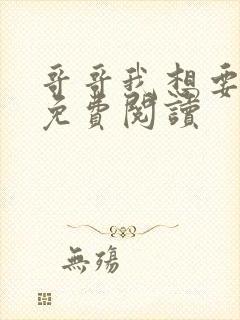 哥哥我想要
免費閱讀
無殤